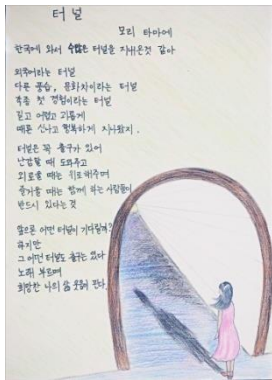 터널
모리 타마에
한국에 와서 수많은 터널을 지나온것 같아
외국어라는 터널
다른 풍습, 문화차이라는 터널
각종 첫 경험이라는 터널
길고 어렵고 괴롭게
때론 신나고 행복하게 지나왔지.
터널은 꼭 출구가 있어
난감할 때 도와주고
외로울 때는 위로해주며
즐거울 때는 함께 하는 사람들이
반드시 있다는 것
앞으론 어떤 터널이 기다릴까?
하지만
그 어떤 터널도 출구는 있다
노래 부르며
희망찬 나의 삶